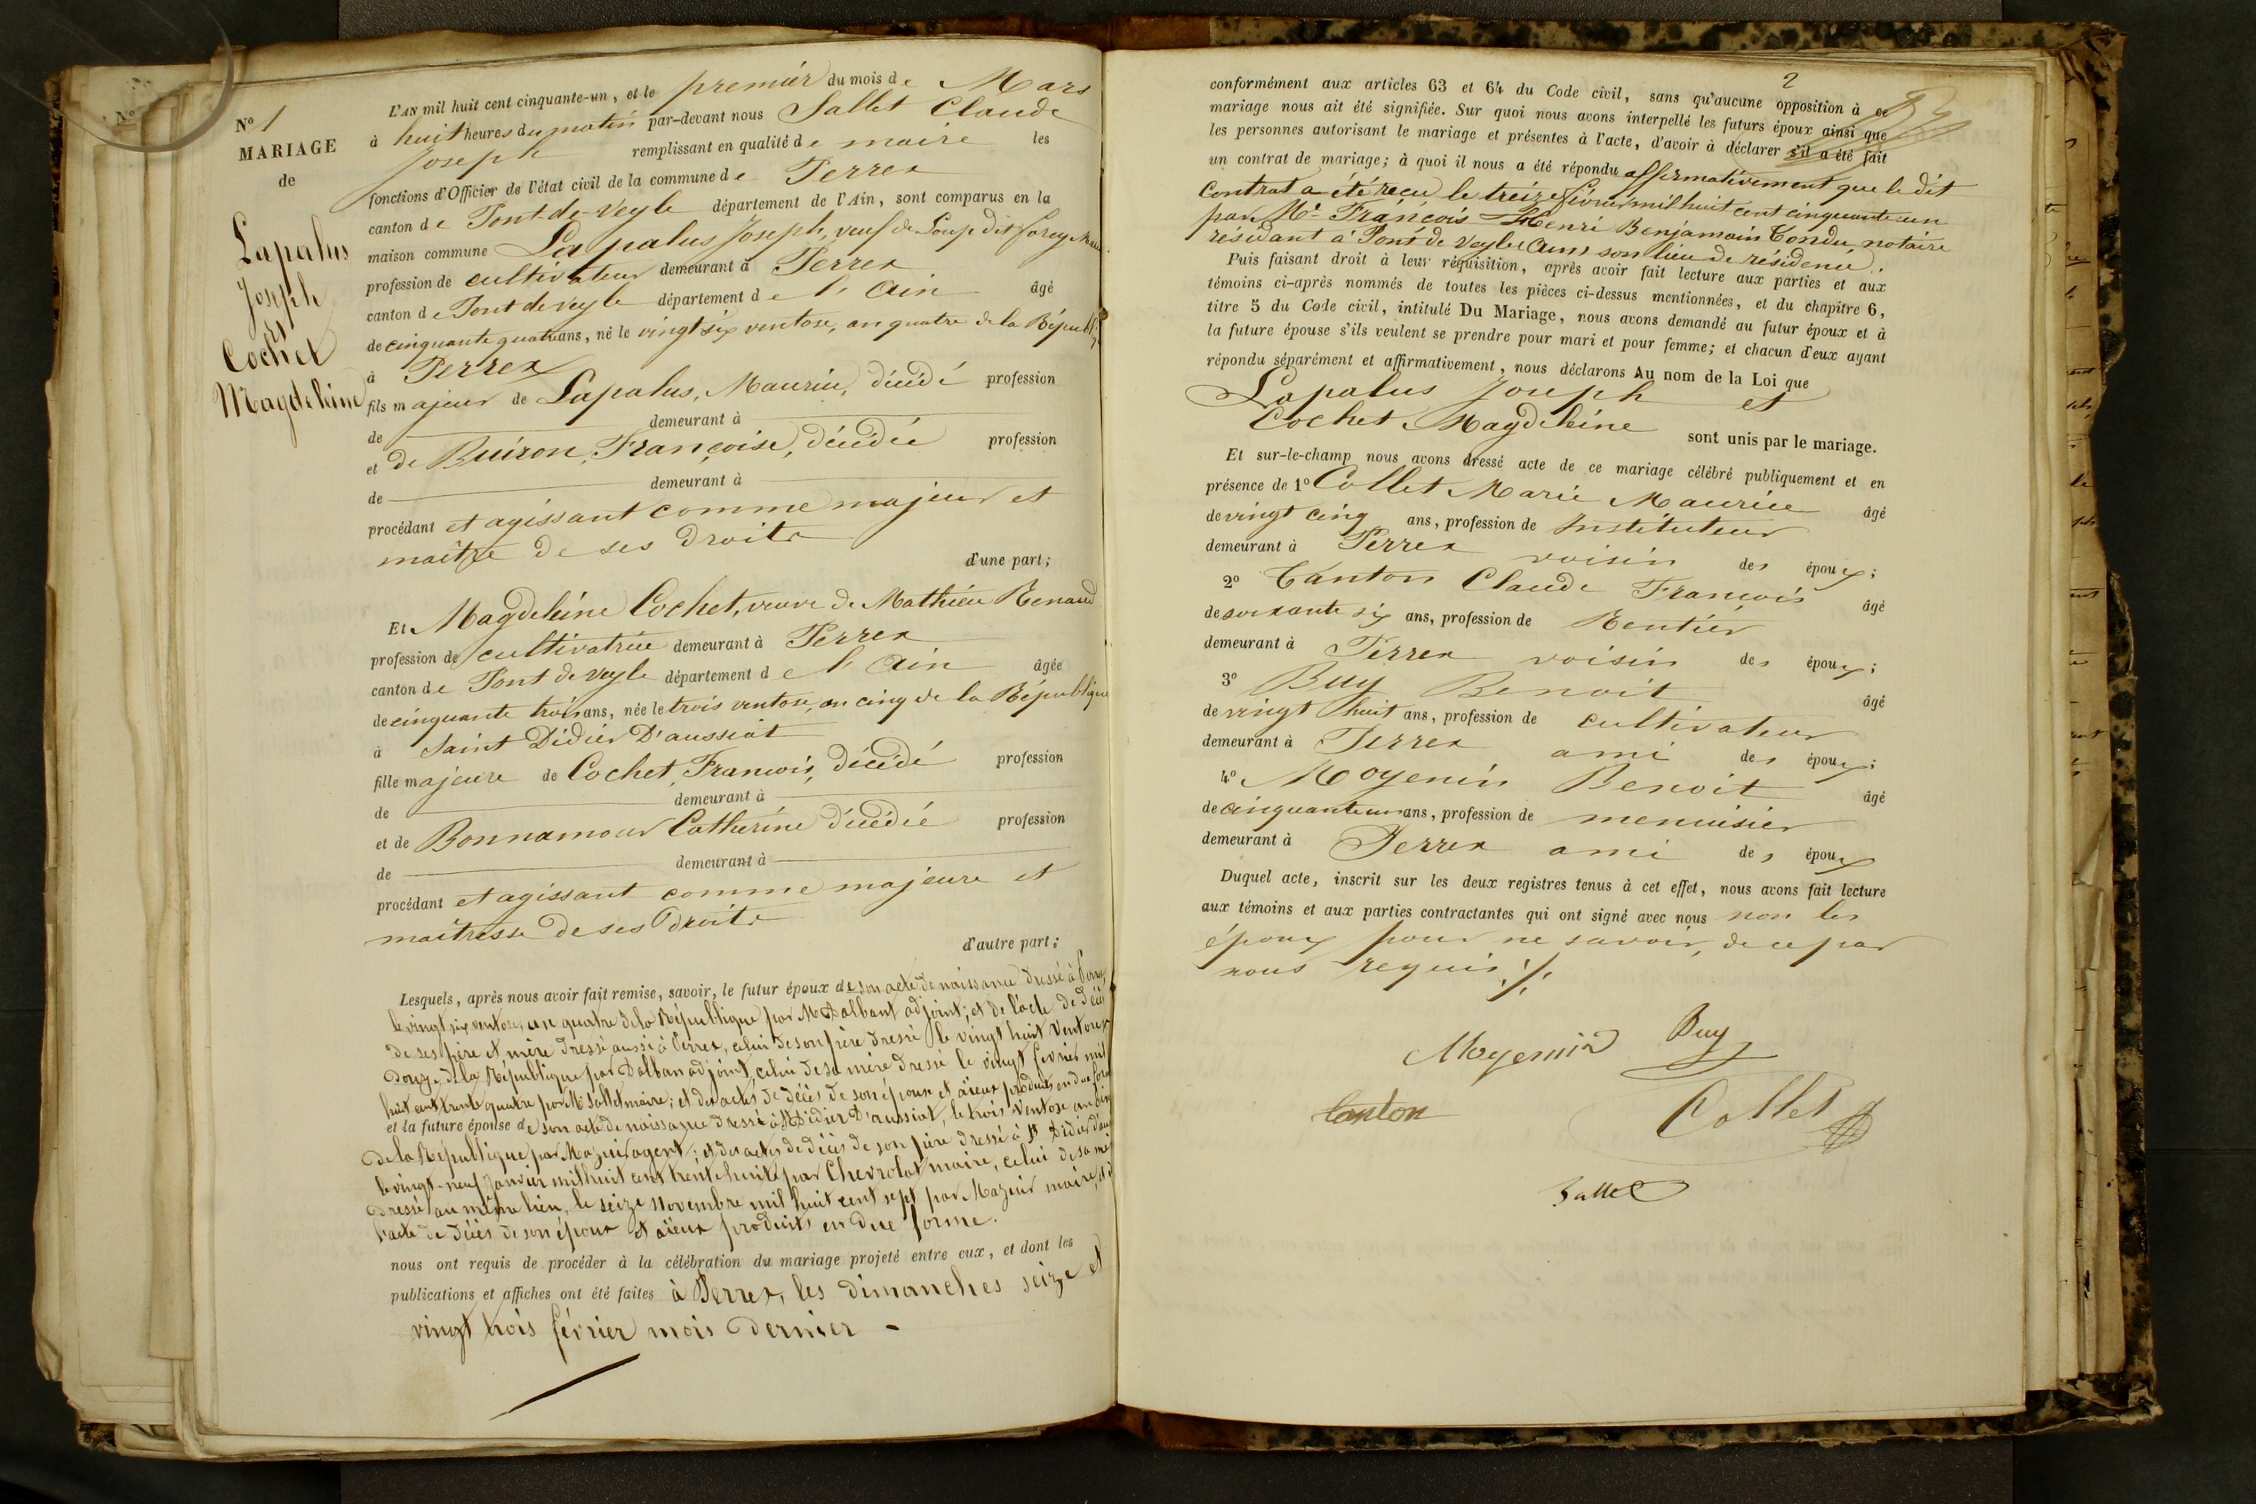 N° 1
MARIAGE
de
Lapalus
Joseph
et
Cochet
Magdeleine
L'AN mil huit cent cinquante-un, et le premier du mois de Mars
à huit heures du matin par-devant nous Sallet Claude
Joseph remplissant en qualité de maire les
fonctions d'Officier de l'état civil de la commune de Perrex
canton de Pont-de-Veyle département de l'Ain, sont comparus en la
maison commune Lapalus Joseph, veuf de Loup dit forey
profession de cultivateur demeurant à Perrex
canton de Pont de veyle département de l'Ain âgé
de cinquante quatre ans, né le vingt six ventose, an quatre de la Républ
à Perrex
fils majeur de Lapalus, Maurice, décédé profession
de demeurant à
et de Buiron, Françoise, décédée profession
de demeurant à
procédant et agissant comme majeur et
maître de ses droits
d'une part;
Et Magdeleine Cochet, veuve de Mathieu Renaud
profession de cultivatrice demeurant à Perrex
canton de Pont de veyle département de l'Ain âgée
de cinquante trois ans, née le trois ventose, an cinq de la République
à Saint Didier D'aussiat
fille majeure de Cochet, François, décédé profession
de demeurant à
et de Bonnamour Catherine décédée profession
de demeurant à
procédant et agissant comme majeure et
maîtresse de ses droits
d'autre part;
Lesquels, après nous avoir fait remise, savoir, le futur époux de son acte de naissance dressé à Perrex
le vingt six ventose, an quatre de la République par M Dalbant adjoint; et de l'acte de décès
de ses père et mère dressé aussi à Perrex, celui de son père dressé le vingt huit Ventose
douze de la République par Dalban adjoint, celui de sa mère dressé le vingt fevrier mil
huit cent trente quatre par M. Sallet maire; et des actes de décès de son épouse et aïeux produits en due forme
et la future épouse de son acte de naissance dressé à St Didier D'aussiat, le trois Ventose an cinq
de la République par Mazuir agent; et des actes de décès de son père dressé à St Didier d'au
le vingt-neuf Janvier mil huit cent trente huit par Chevrolat maire, celui de sa mère
dressé au même lieu, le seize Novembre mil huit cent sept par Mazuir maire, et de
l'acte de décès de son époux et aïeux produits en due forme.
nous ont requis de procéder à la célébration du mariage projeté entre eux, et dont les
publications et affiches ont été faites à Perrex, les dimanches seize et
vingt trois février mois dernier -
2
conformément aux articles 63 et 64 du Code civil, sans qu'aucune opposition à ce
mariage nous ait été signifiée. Sur quoi nous avons interpellé les futurs époux ainsi que
les personnes autorisant le mariage et présentes à l'acte, d'avoir à déclarer s'il a été fait
un contrat de mariage; à quoi il nous a été répondu affirmativement que le dit
contrat a été reçu le treize février mil huit cent cinquante un
par Me François Henri Benjamin Tondu, notaire
résidant à Pont de Veyle (Ain) son lieu de résidence.
Puis faisant droit à leur réquisition, après avoir fait lecture aux parties et aux
témoins ci-après nommés de toutes les pièces ci-dessus mentionnées, et du chapitre 6,
titre 5 du Code civil, intitulé Du Mariage, nous avons demandé au futur époux et à
la future épouse s'ils veulent se prendre pour mari et pour femme; et chacun d'eux ayant
répondu séparément et affirmativement, nous déclarons Au nom de la Loi que
Lapalus Joseph et
Cochet Magdeleine sont unis par le mariage.
Et sur-le-champ nous avons dressé acte de ce mariage célébré publiquement et en
présence de 1° Collet Marie Maurice âgé
de vingt cinq ans, profession de Instituteur
demeurant à Perrex voisin des époux;
2° Canton Claude François âgé
de soixante six ans, profession de Rentier
demeurant à Perrex voisin des époux;
3° Buy Benoit âgé
de vingt huit ans, profession de cultivateur
demeurant à Perrex ami des époux;
4° Moyenin Benoit âgé
de cinquante un ans, profession de menuisier
demeurant à Perrex ami des époux
Duquel acte, inscrit sur les deux registres tenus à cet effet, nous avons fait lecture
aux témoins et aux parties contractantes qui ont signé avec nous non les
époux pour ne savoir, de ce par
nous requis ./.
Moyenin Buy
Canton Collet
Sallet